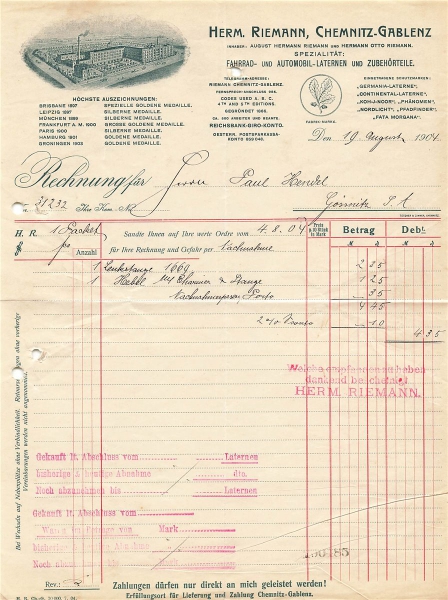 HERM. RIEMANN, CHEMNITZ-GABLENZ
INHABER: AUGUST HERMANN RIEMANN UND HERMANN OTTO RIEMANN.
SPEZIALITÄT:
FAHRRAD- UND AUTOMOBIL-LATERNEN UND ZUBEHÖRTEILE.
HÖCHSTE AUSZEICHNUNGEN:
BRISBANE 1897 SPEZIELLE GOLDENE MEDAILLE.
LEIPZIG 1897 SILBERNE MEDAILLE.
MÜNCHEN 1899 SILBERNE MEDAILLE.
FRANKFURT A. M. 1900 GROSSE GOLDENE MEDAILLE.
PARIS 1900 SILBERNE MEDAILLE.
HAMBURG 1901 GOLDENE MEDAILLE.
GRONINGEN 1903 GOLDENE MEDAILLE.
TELEGRAMM-ADRESSE:
RIEMANN CHEMNITZ-GABLENZ.
FERNSPRECH-ANSCHLUSS
CODES USED A. B. C.
4TH AND 5TH EDITIONS.
GEGRÜNDET 1866.
REICHSBANK-GIRO-KONTO.
OESTERR. POSTSPARKASSEN-
KONTO
FABRIK-MARKE.
EINGETRAGENE SCHUTZMARKEN:
„GERMANIA-LATERNE“,
„CONTINENTAL-LATERNE“,
„KOH-I-NOOR“, „PHÄNOMEN“,
„NORDLICHT“, „PFADFINDER“,
„FATA MORGANA“.
Den 19. August 1904
Rechnung für Herrn Paul Hendel
Gössnitz S. A.
31232 Ihre Kom.-No.
H. R. 1 Packet Sandte Ihnen auf Ihre werte Ordre vom 4.8.04 Betrag Deb!.
Anzahl für Ihre Rechnung und Gefahr per Nachnahme
1 Lenkstange 1669 2 35
1 1 25
Porto 35
4 45
2% Sconto 10
4 35
Welche empfangen zu haben
dankend bescheinigt
HERM. RIEMANN.
Bei Wechseln auf Nebenplätze ohne Verbindlichkeit.
Gekauft lt. Abschluss vom Laternen
bisherige & heutige Abnahme dto.
Noch abzunehmen bis Laternen
Gekauft lt. Abschluss vom
Waren im Betrage von Mark
bisherige & heutige Abnahme
Noch bis Mark
Rev.:
Zahlungen dürfen nur direkt an mich geleistet werden!
Erfüllungsort für Lieferung und Zahlung Chemnitz-Gablenz.